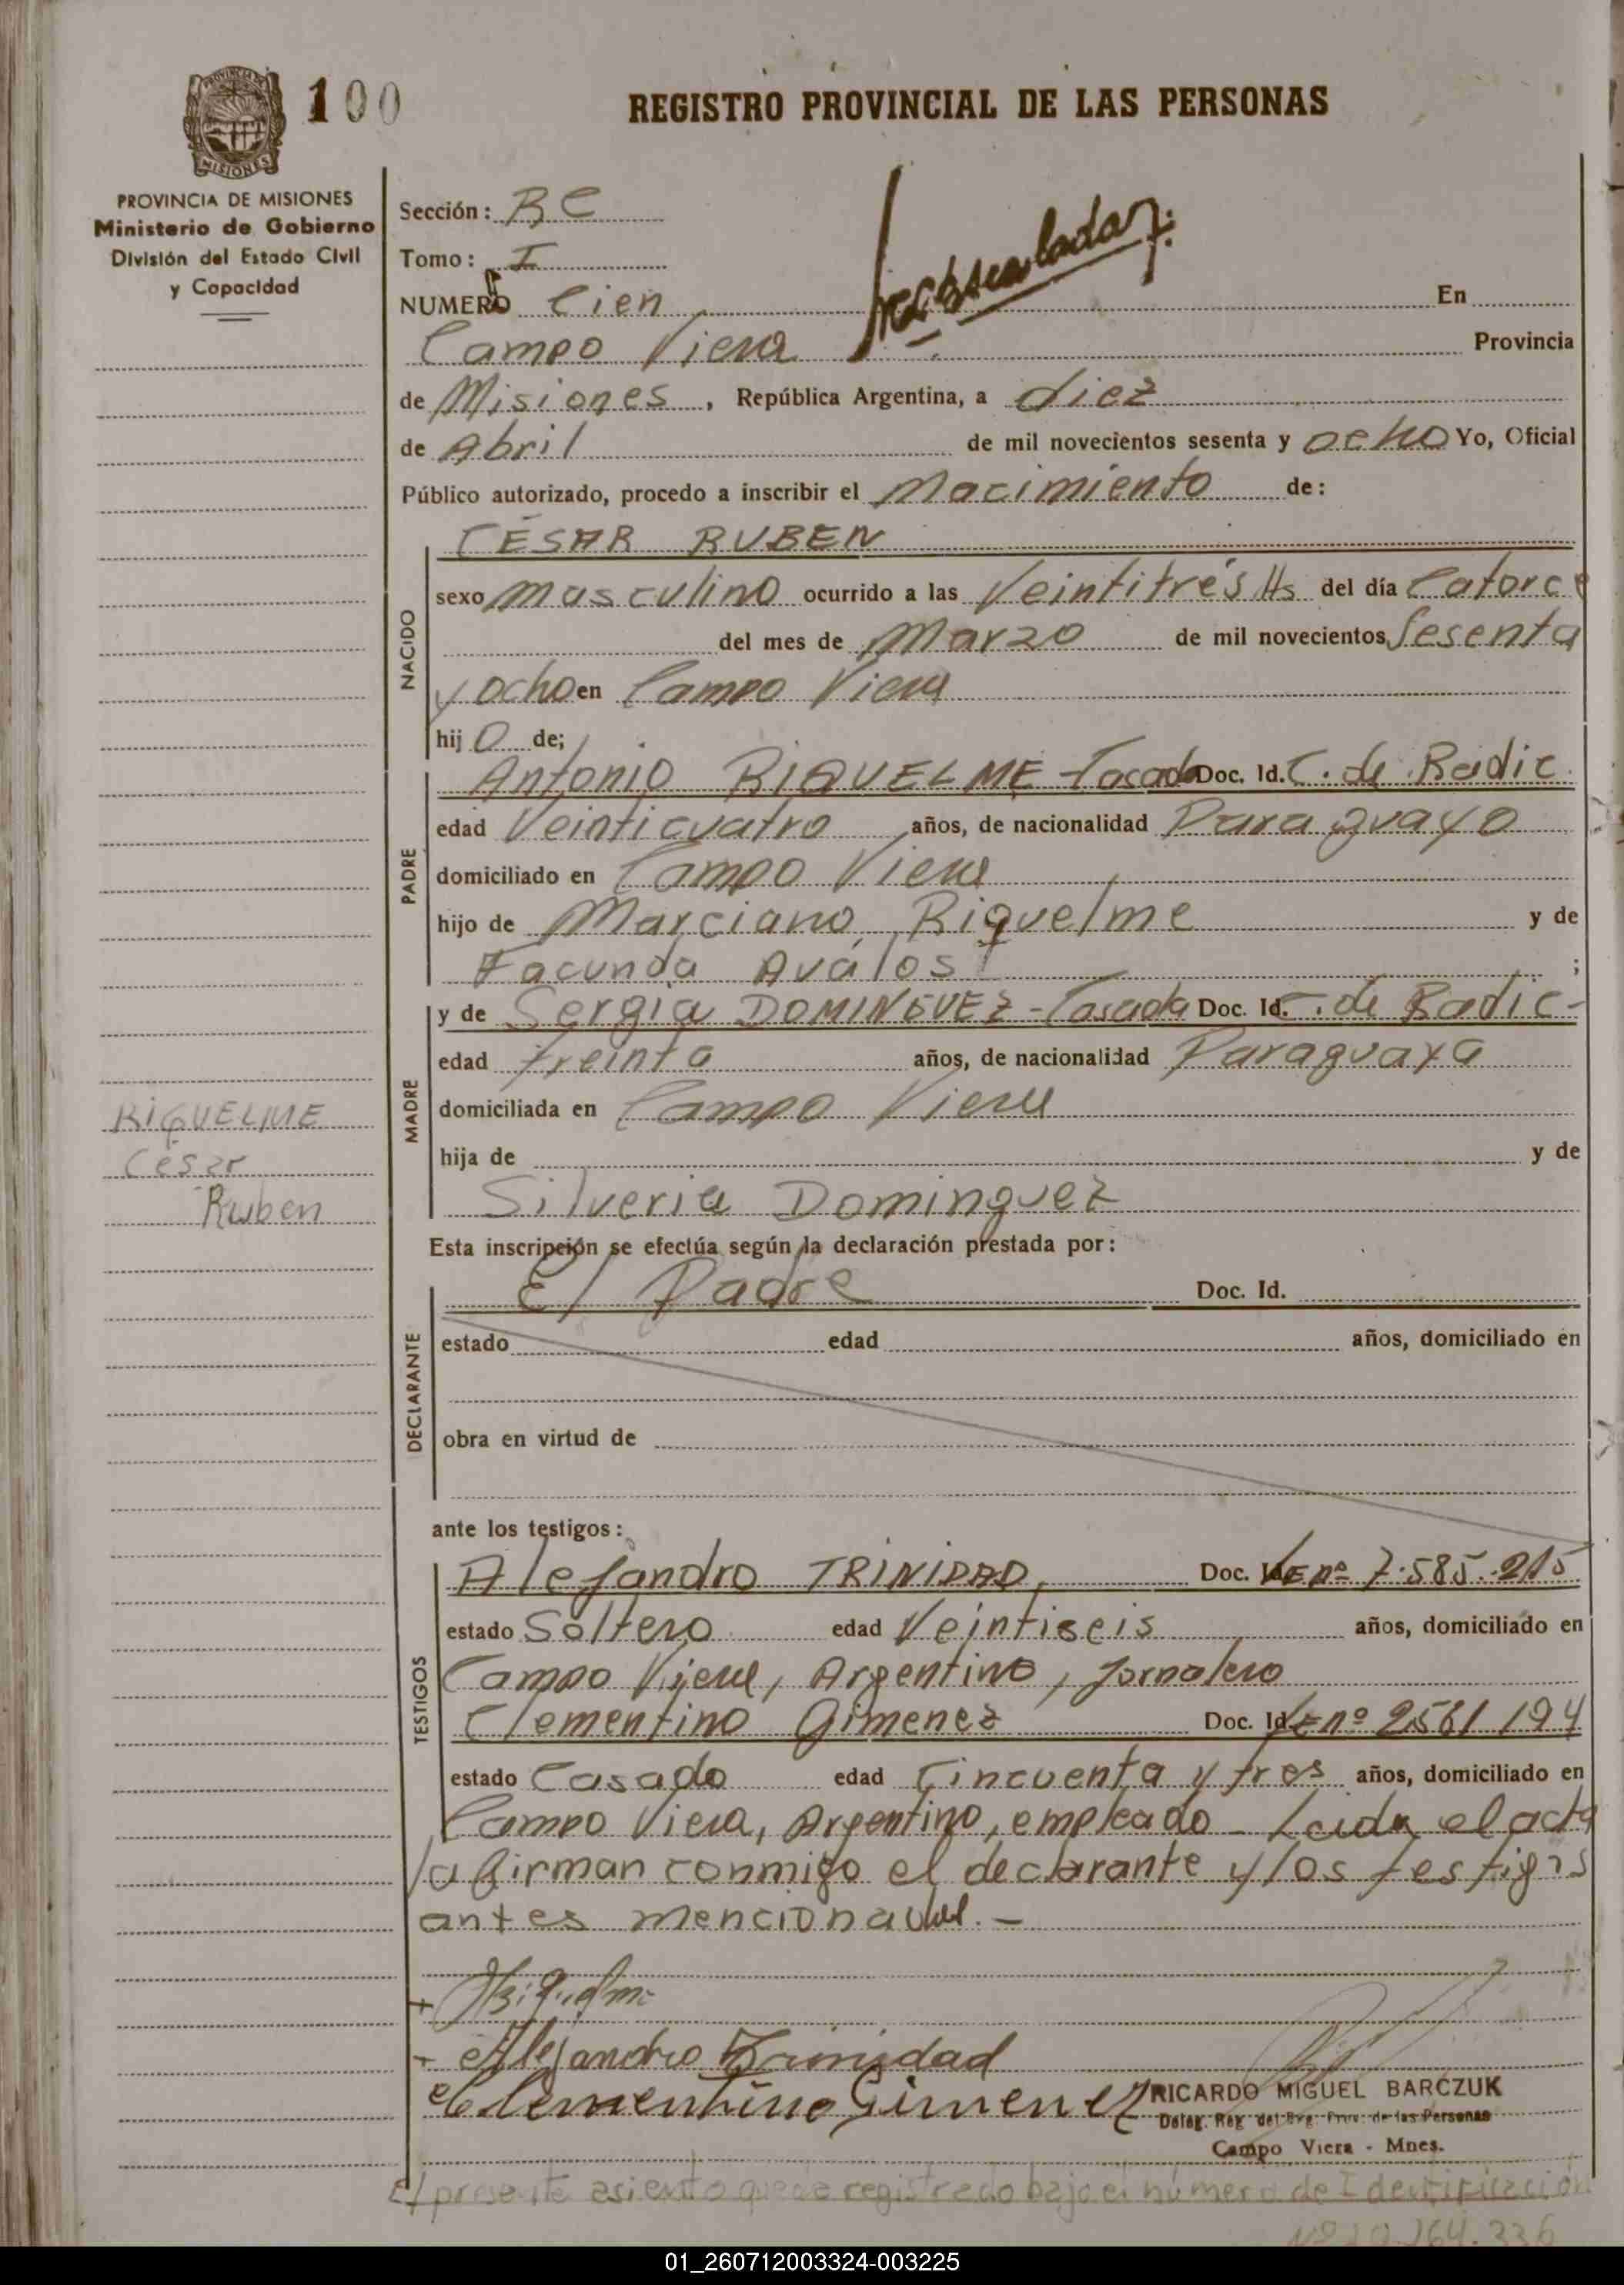 100
REGISTRO PROVINCIAL DE LAS PERSONAS
PROVINCIA DE MISIONES
MISIONES
PROVINCIA DE MISIONES
Ministerio de Gobierno
División del Estado Civil
y Capacidad
Sección: B C
Tomo: I
NUMERO Cien En
Campo Viera Provincia
de Misiones, República Argentina, a diez
de Abril de mil novecientos sesenta y ocho Yo, Oficial
Público autorizado, procedo a inscribir el Nacimiento de:
CÉSAR RUBEN
NACIDO
sexo masculino ocurrido a las Veintitrés Hs del día Catorce
del mes de Marzo de mil novecientos Sesenta
y ocho en Campo Viera
hijo de;
PADRE
Antonio RIQUELME - Casado Doc. Id. C. de Radic.
edad Veinticuatro años, de nacionalidad Paraguayo
domiciliado en Campo Viera
hijo de Marciano Riquelme y de
Facunda Avalos ;
MADRE
y de Sergia DOMINGUEZ - Casada Doc. Id. C. de Radic-
edad treinta años, de nacionalidad Paraguaya
domiciliada en Campo Viera
hija de y de
Silveria Dominguez
RIQUELME
César
Ruben
Esta inscripción se efectúa según la declaración prestada por:
DECLARANTE
El Padre Doc. Id.
estado edad años, domiciliado en
obra en virtud de
ante los testigos:
TESTIGOS
Alejandro TRINIDAD, Doc. LE nº 7.585.215
estado Soltero edad Veintiseis años, domiciliado en
Campo Viera, Argentino, jornalero
Clementino Gimenez Doc. Id. LE nº 2561194
estado Casado edad Cincuenta y tres años, domiciliado en
Campo Viera, Argentino, empleado - Leida el acta
la firman conmigo el declarante y los testigos
antes mencionados. -
Riquelme
Alejandro Trinidad
Clementino Gimenez
RICARDO MIGUEL BARCZUK
Deleg. Reg. del Reg. Prov. de las Personas
Campo Viera - Mnes.
El presente asiento queda registrado bajo el número de Identificación
01_260712003324-003225